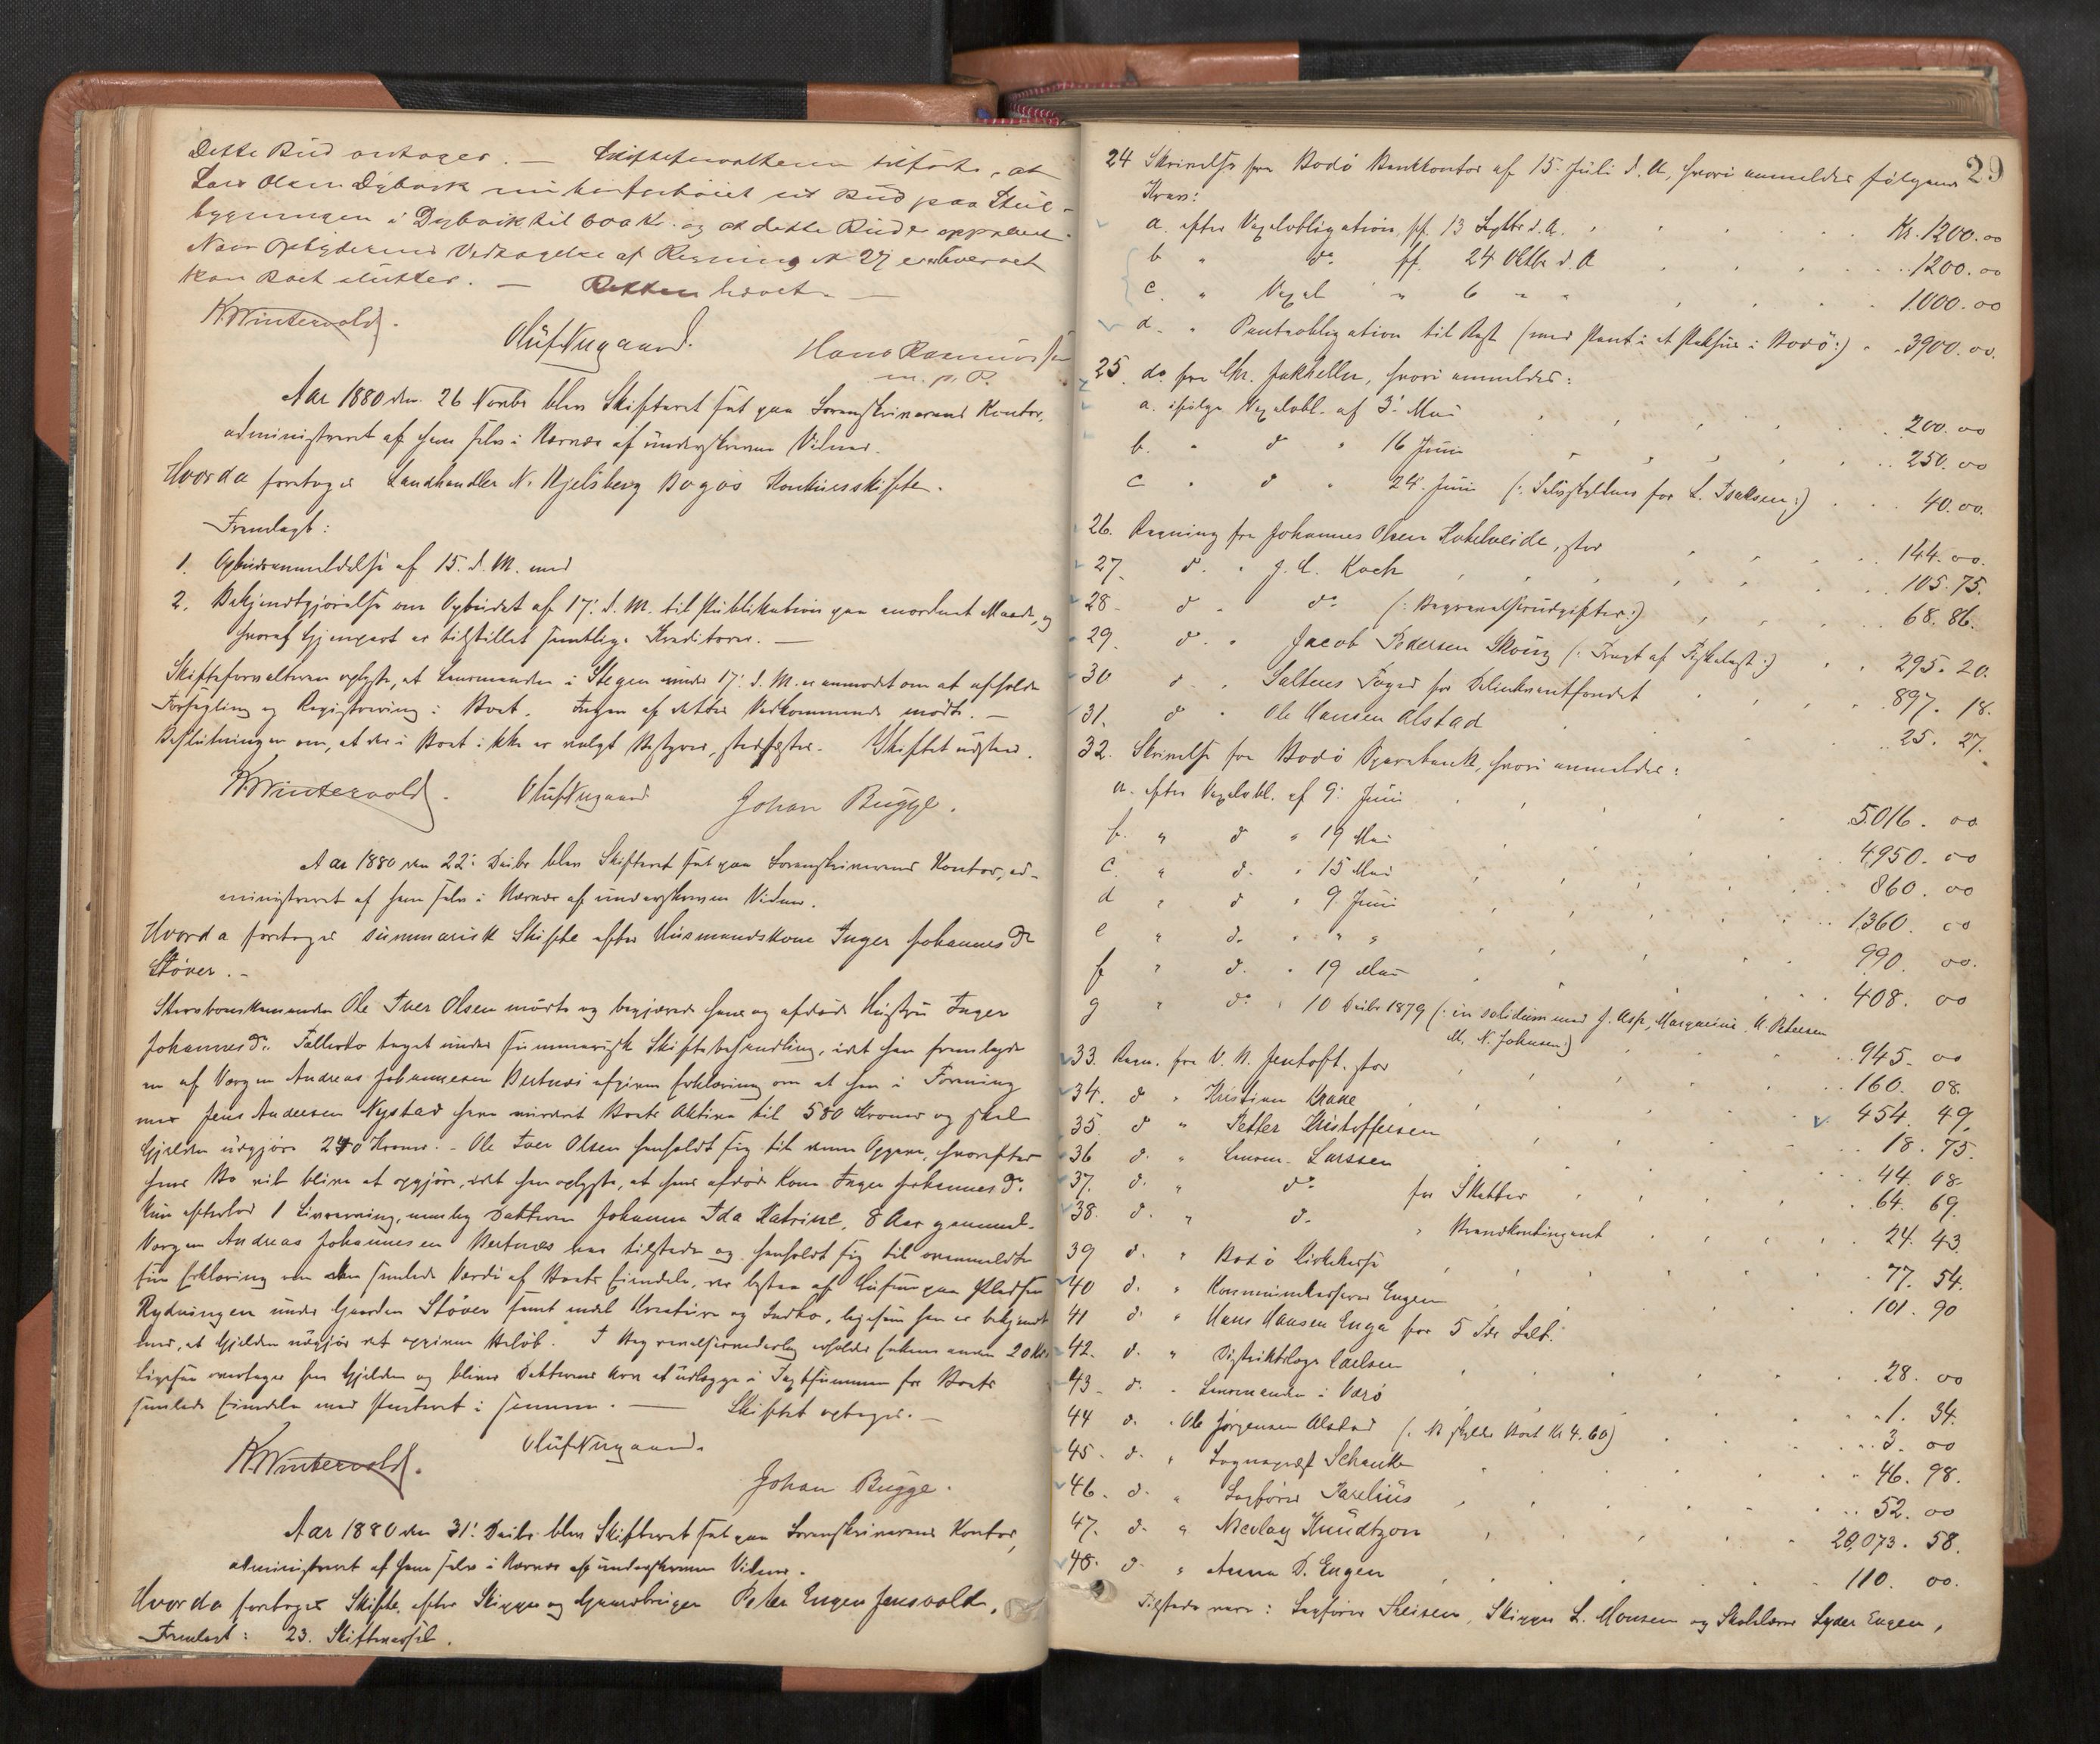 Dette Bud antages. — Skifteforvalteren tilførte, at
Lars Olsen Dybvik nu har forhøiet sit Bud paa Stue-
bygningen i Dybvik til 600 Kr. og at dette Bud er
Naar Opbyderens Vedtagelse af Regning No 27 er
kan Boet sluttes. — Retten hævet. —
K. Wintervold. Oluf Nygaard. Hans Rasmussen
m. p. P.
Aar 1880 den 26 Novbr blev Skifteret sat paa Sorenskriverens Kontor,
administreret af ham selv i Nærvær af underskrevne Vidner.
Hvorda foretoges Landhandler N. Kjelsberg Bogøs Konkursskifte.
Fremlagt:
1. Opbudsanmeldelse af 15. d. M. med
2. Bekjendtgjørelse om Opbudet af 17. d. M. til Publikation paa anordnet Maade, og
hvoraf Gjenpart er tilstillet samtlige Kreditorer. —
Skifteforvalteren oplyste, at Lensmanden i Stegen under 17. d. M. er anmodet om at afholde
Forsegling og Registrering i Boet. Ingen af dettes Vedkommende mødte. —
Beslutningen om, at der i Boet ikke er valgt Bestyrer, stadfæstes. Skiftet udstaar.
K. Wintervold. Oluf Nygaard. Johan Bugge.
Aar 1880 den 22. Decbr blev Skifteret sat paa Sorenskriverens Kontor, ad-
ministreret af ham selv i Nærvær af underskrevne Vidner.
Hvorda foretoges summarisk Skifte efter Husmandskone Inger Johannesdr
Støver. —
Ole Iver Olsen mødte og begjærede hans og afdøde Hustru Inger
Johannesdr. Fællesbo taget under summarisk Skiftebehandling, idet han fremlagde
en af Værgen Andreas Johannesen Bertnes afgiven Erklæring om at han i Forening
med Jens Andersen Nystad have vurderet Boets Aktiva til 580 Kroner og skal
Gjælden udgjøre 240 Kroner. - Ole Iver Olsen henholdt sig til denne Opgave, hvorefter
hans Bo vil blive at opgjøre, idet han oplyste, at hans afdøde Kone Inger Johannesdr.
kun efterlod 1 Livsarving, nemlig Datteren Johanna Ida Katrine, 8 Aar gammel.
Værgen Andreas Johannesen Bertnes var tilstede og henholdt sig til ovenmeldte
sin Erklæring om den samlede Værdi af Boets Eiendele, der bestaa af Huse paa Pladsen
Rydningen under Gaarden Støver samt endel Kreature og Indbo, ligesom han er bekjendt
med, at Gjælden udgjør det opgivne Beløb. I Begravelsesvederlag erholder Enkemanden 20 Kr.
Ligesaa overtager han Gjælden og bliver Datterens Arv at udlægge i Taxtsummen for Boets
samlede Eiendele med Panteret i samme. — Skiftet optages. —
K. Wintervold. Oluf Nygaard. Johan Bugge.
Aar 1880 den 31. Decbr. blev Skifteret sat paa Sorenskriverens Kontor,
administreret af ham selv i Nærvær af underskrevne Vidner.
Hvorda foretoges Skifte efter Skipper og Gaardbruger Peter Engen Jensvold.
Fremlagt: 23. Skifteudskrift.
29
24 Skrivelse fra Bodø Bankkontor af 15. Juli d. A, hvori anmeldes følgende
Krav:
a. efter Vexelobligation, ff. 13 Septbr d. A. Kr. 1200.00
b " do ff. 24 Oktbr d. A 1200.00
c. " Vexel " 6 " " 1000.00
d. " Panteobligation til Rest (med Pant i et Pakhus i Bodø:) 3900.00.
25. do fra Chr. Jakhelln, hvori anmeldes:
a. ifølge Vexelobl. af 3. Mai 200.00
b. " d " 16 Juni 250.00
c " d " 24. Juni (: Selvskyldner for L. Isaksen:) 40.00.
26. Regning fra Johannes Olsen Hotelveide, stor 144.00.
27. d. " J. C. Koch 105.75.
28 d " do (: Begravelsesudgifter:) 68.86.
29. d. " Jacob Pedersen Skaug (: Fragt af Fiskelast:) 295.20.
30 d. " Saltens Foged for Delinkventfondet 897.18.
31. d " Ole Hansen Alstad 25.27.
32. Skrivelse fra Bodø Sparebank, hvori anmeldes:
a. efter Vexelobl. af 9. Juni 5016.00
b. " d " 19 Mai 4950.00
c. " d. " 15 Mai 860.00
d " d " 9. Juni 1360.00
e " d. " " " 990.00.
f " d. " 19 Mai 408.00
g " do " 10 Decbr 1879 (: in solidum med J. Asp, Margarine A. Petersen
M. N. Johnsen:) 945.00
33. Regn. fra V. B. Jentoft, stor 160.08.
34. d " Kristian Krane 454.49.
35. d " Petter Kristoffersen 18.75.
36 d. " Lensm. Larssen 44.08.
37. d. " do for Skatter 64.69.
38. d. " d. " Brandkontingent 24.43.
39 d. " Bodø Kirkekasse 77.54.
40 d. " Kommunekasserer Engen 101.90
41 d. " Hans Hansen Enga for 5 Tdr Salt.
42. d. " Distriktslæge Carlsen 28.00
43. d. " Lensmanden i Værø 1.34.
44 d. " Ole Jørgensen Alstad (: NB skylder Boet Kr 4.60) 3.00
45. d. " Sogneprest Schanke 46.98.
46. d. " Sagfører Parelius 52.00
47. d. " Nicolay Knudtzon 20,073.58.
48. d. " Anna D. Engen 110.00.
Tilstede vare: Sagfører Theisen, Skipper L. Monsen og Skolelærer Lyder Engen,